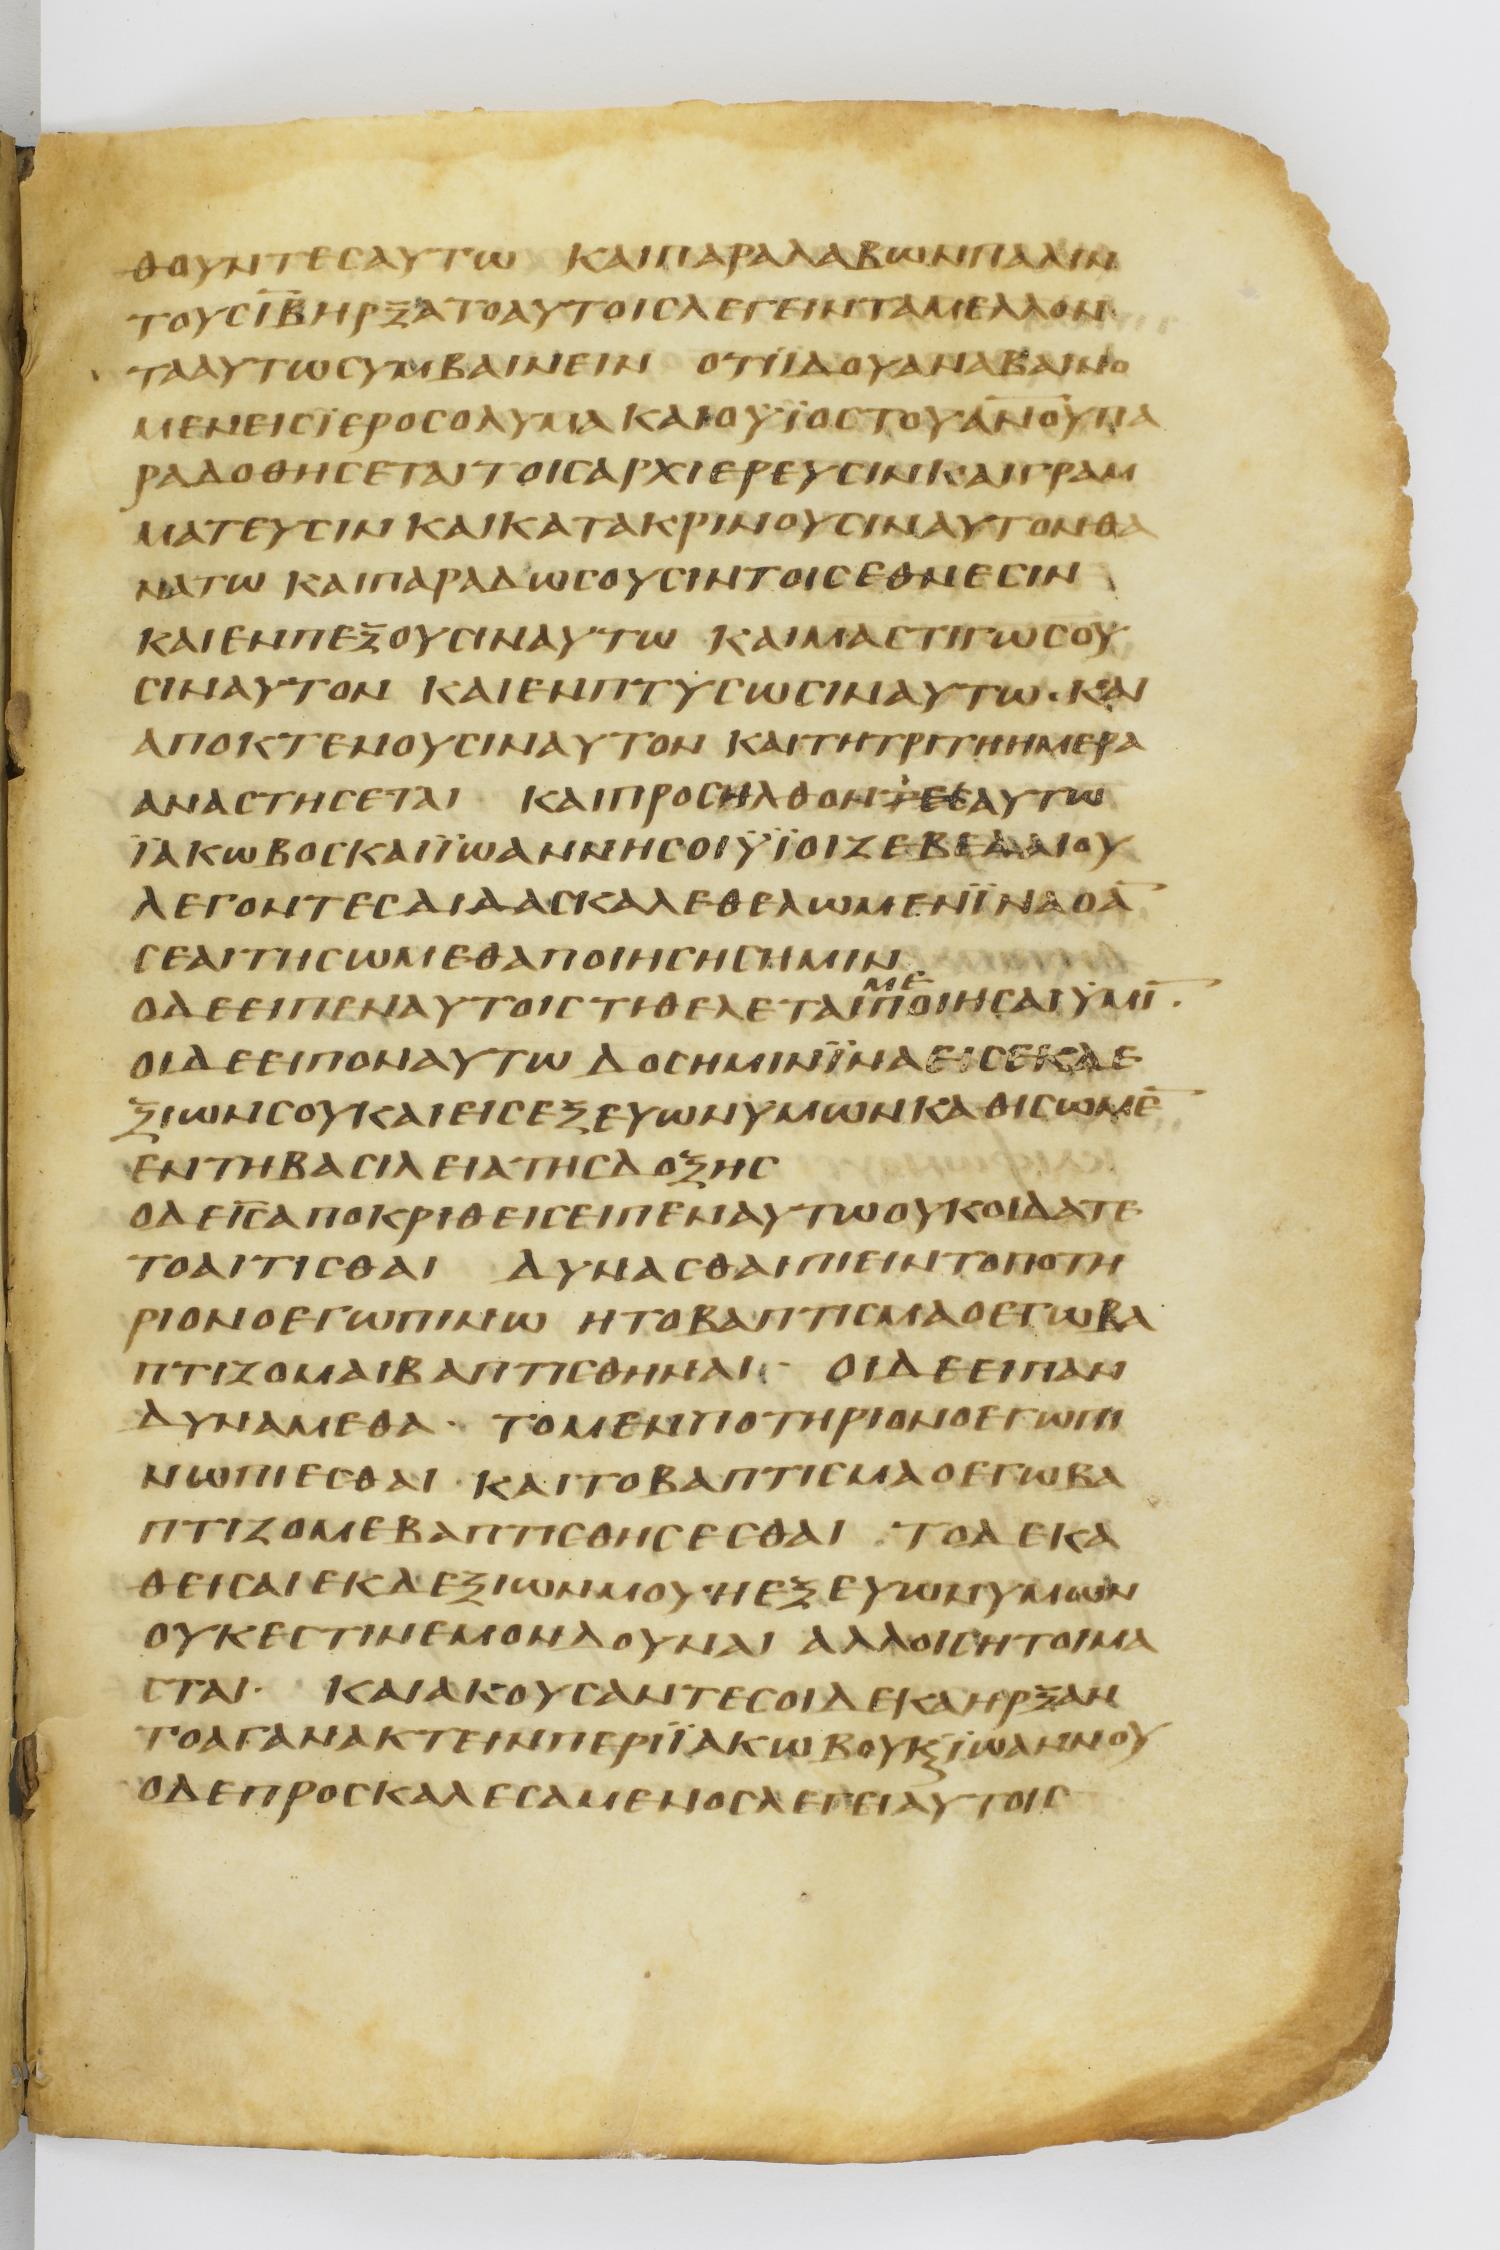 ΘΟΥΝΤΕСΑΥΤΩ ΚΑΙΠΑΡΑΛΑΒΩΝΠΑΛΙΝ
ΤΟΥСΙ̅Β̅ΗΡΞΑΤΟΑΥΤΟΙСΛΕΓΕΙΝΤΑΜΕΛΛΟΝ
ΤΑΑΥΤΩСΥΜΒΑΙΝΕΙΝ ΟΤΙΪΔΟΥΑΝΑΒΑΙΝΟ
ΜΕΝΕΙСΪΕΡΟСΟΛΥΜΑΚΑΙΟΫΪΟСΤΟΥΑ̅Ν̅Ο̅Υ̅ΠΑ
ΡΑΔΟΘΗСΕΤΑΙΤΟΙСΑΡΧΙΕΡΕΥСΙΝΚΑΙΓΡΑΜ
ΜΑΤΕΥСΙΝΚΑΙΚΑΤΑΚΡΙΝΟΥСΙΝΑΥΤΟΝΘΑ
ΝΑΤΩ ΚΑΙΠΑΡΑΔΩСΟΥСΙΝΤΟΙСΕΘΝΕСΙΝ
ΚΑΙΕΝΠΕΞΟΥСΙΝΑΥΤΩ ΚΑΙΜΑСΤΙΓΩСΟΥ
СΙΝΑΥΤΟΝ ΚΑΙΕΝΠΤΥСΩСΙΝΑΥΤΩ·ΚΑΙ
ΑΠΟΚΤΕΝΟΥСΙΝΑΥΤΟΝ ΚΑΙΤΗΤΡΙΤΗΗΜΕΡΑ
ΑΝΑСΤΗСΕΤΑΙ ΚΑΙΠΡΟСΗΛΘΟΝΑΥΤΩ
ΪΑΚΩΒΟСΚΑΙΪΩΑΝΝΗСΟΙΫΪΟΙΖΕΒΕΔΑΙΟΥ
ΛΕΓΟΝΤΕСΔΙΔΑСΚΑΛΕΘΕΛΩΜΕΝΪΝΑΟΑ̅
СΕΑΙΤΗСΩΜΕΘΑΠΟΙΗСΗСΗΜΙΝ
ΟΔΕΕΙΠΕΝΑΥΤΟΙСΤΙΘΕΛΕΤΑΙΜΕΠΟΙΗСΑΙΫΜΙ̅·
ΟΙΔΕΕΙΠΟΝΑΥΤΩ ΔΟСΗΜΙΝΪΝΑΕΙСΕΚΔΕ
ΞΙΩΝСΟΥΚΑΙΕΙСΕΞΕΥΩΝΥΜΩΝΚΑΘΙСΩΜΕ̅
ΕΝΤΗΒΑСΙΛΕΙΑΤΗСΔΟΞΗС
ΟΔΕΙ̅С̅ΑΠΟΚΡΙΘΕΙСΕΙΠΕΝΑΥΤΩΟΥΚΟΙΔΑΤΕ
ΤΟΑΙΤΙСΘΑΙ ΔΥΝΑСΘΑΙΠΙΕΙΝΤΟΠΟΤΗ
ΡΙΟΝΟΕΓΩΠΙΝΩ ΗΤΟΒΑΠΤΙСΜΑΟΕΓΩΒΑ
ΠΤΙΖΟΜΑΙΒΑΠΤΙСΘΗΝΑΙ· ΟΙΔΕΕΙΠΑΝ
ΔΥΝΑΜΕΘΑ· ΤΟΜΕΝΠΟΤΗΡΙΟΝΟΕΓΩΠΙ
ΝΩΠΙΕСΘΑΙ·ΚΑΙΤΟΒΑΠΤΙСΜΑΟΕΓΩΒΑ
ΠΤΙΖΟΜΕΒΑΠΤΙСΘΗСΕСΘΑΙ·ΤΟΔΕΚΑ
ΘΕΙСΑΙΕΚΔΕΞΙΩΝΜΟΥ·ΗΕΞΕΥΩΝΥΜΩΝ
ΟΥΚΕСΤΙΝΕΜΟΝΔΟΥΝΑΙ ΑΛΛΟΙСΗΤΟΙΜΑ
СΤΑΙ· ΚΑΙΑΚΟΥСΑΝΤΕСΟΙΔΕΚΑΗΡΞΑΝ
ΤΟΑΓΑΝΑΚΤΕΙΝΠΕΡΙΪΑΚΩΒΟΥΚϚΪΩΑΝΝΟΥ
ΟΔΕΠΡΟСΚΑΛΕСΑΜΕΝΟСΛΕΓΕΙΑΥΤΟΙС